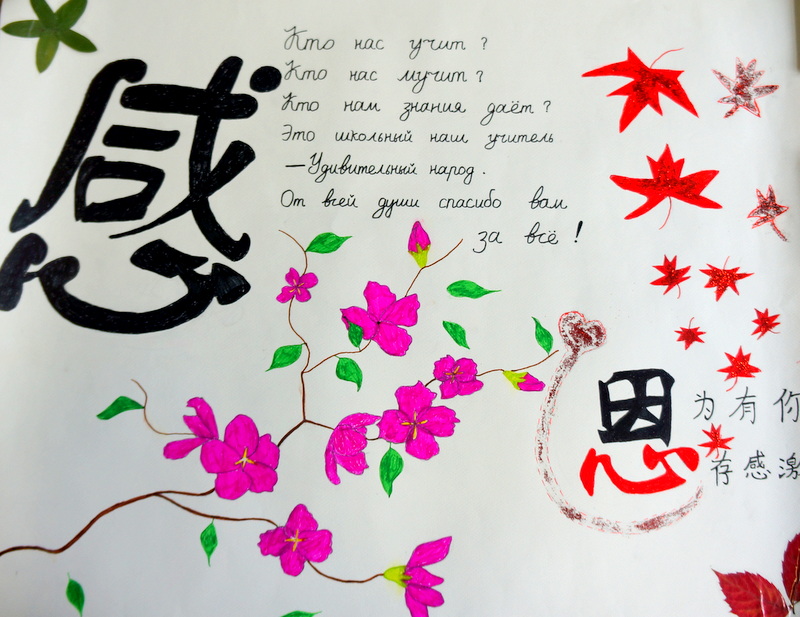 感
Кто нас учит?
Кто нас мучит?
Кто нам знания даёт?
Это школьный наш учитель
—Удивительный народ.
От всей души спасибо вам
за всё!
恩
为有你
存感激